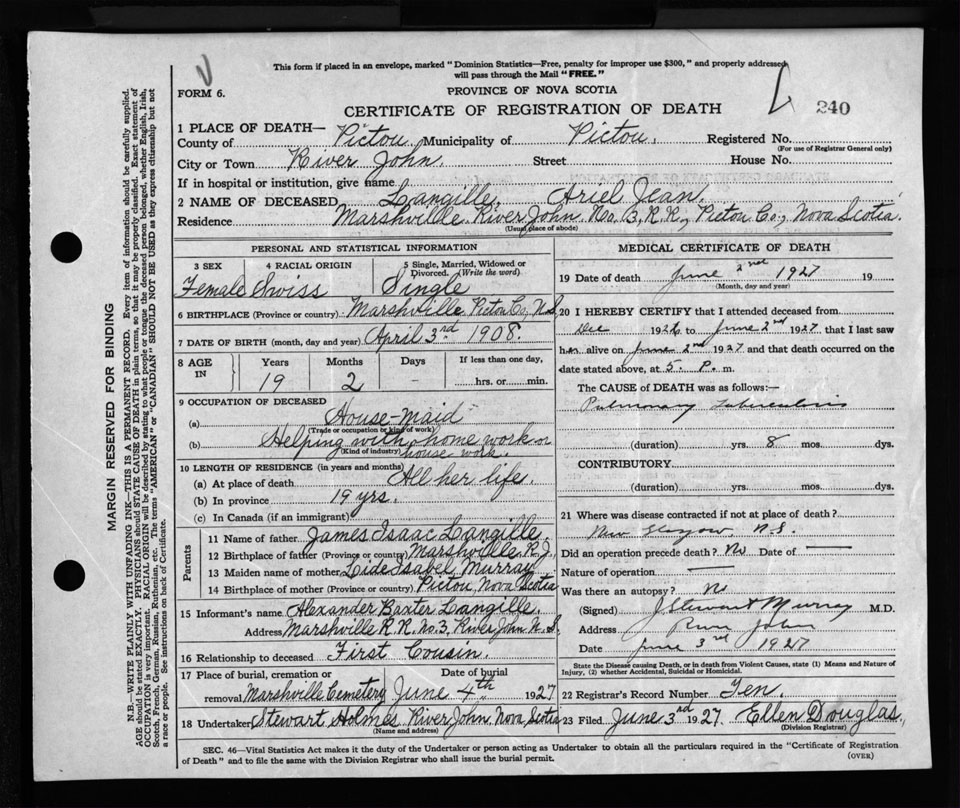 This form if placed in an envelope, marked "Dominion Statistics—Free, penalty for improper use $300," and properly addressed
will pass through the Mail "FREE."
FORM 6.
PROVINCE OF NOVA SCOTIA
CERTIFICATE OF REGISTRATION OF DEATH
240
MARGIN RESERVED FOR BINDING
N.B.—WRITE PLAINLY WITH UNFADING INK—THIS IS A PERMANENT RECORD. Every item of information should be carefully supplied.
AGE should be stated EXACTLY. PHYSICIANS should STATE CAUSE OF DEATH in plain terms, so that it may be properly classified. Exact statement of
OCCUPATION is very important. RACIAL ORIGIN will be described by stating to what people or tongue the deceased person belonged, whether English, Irish,
Scotch, French, German, Russian, Ruthenian, etc. The terms "AMERICAN" or "CANADIAN" SHOULD NOT BE USED as they express citizenship but not
a race or people. See instructions on back of Certificate.
1 PLACE OF DEATH—
County of Pictou Municipality of Pictou. Registered No.
(For use of Registrar General only)
City or Town River John Street House No.
If in hospital or institution, give name
2 NAME OF DECEASED Langille, Ariel Jean.
Residence Marshville. River John. No. 3, R.R., Pictou Co., Nova Scotia.
(Usual place of abode)
PERSONAL AND STATISTICAL INFORMATION
3 SEX 4 RACIAL ORIGIN 5 Single, Married, Widowed or
Divorced. (Write the word)
Female Swiss Single
6 BIRTHPLACE (Province or country) Marshville, Pictou Co, N.S.
7 DATE OF BIRTH (month, day and year) April 3rd 1908.
8 AGE IN Years Months Days If less than one day,
19 2 - hrs. or min.
9 OCCUPATION OF DECEASED
(a) House-maid
(Trade or occupation or kind of work)
(b) Helping with home work or
(Kind of industry) house work.
10 LENGTH OF RESIDENCE (in years and months)
(a) At place of death All her life.
(b) In province 19 yrs.
(c) In Canada (if an immigrant)
Parents
11 Name of father James Isaac Langille.
12 Birthplace of father (Province or country) Marshville. R.J.
13 Maiden name of mother Isabel Murray
14 Birthplace of mother (Province or country) Pictou, Nova Scotia
15 Informant's name Alexander Baxter Langille.
Address Marshville R.R. No. 3, River John N.S.
16 Relationship to deceased First Cousin.
17 Place of burial, cremation or removal Date of burial
Marshville Cemetery June 4th 1927
18 Undertaker Stewart Holmes. River John, Nova Scotia
(Name and address)
MEDICAL CERTIFICATE OF DEATH
19 Date of death June 2nd 1927 19
(Month, day and year)
20 I HEREBY CERTIFY that I attended deceased from
Dec 1926 to June 2nd 1927 that I last saw
her alive on June 2nd 1927 and that death occurred on the
date stated above, at 5. P. m.
The CAUSE of DEATH was as follows:—
Pulmonary Tuberculosis
(duration) yrs. 8 mos. dys.
CONTRIBUTORY
(duration) yrs. mos. dys.
21 Where was disease contracted if not at place of death?
New Glasgow, N.S.
Did an operation precede death? No Date of —
Nature of operation —
Was there an autopsy? No
(Signed) J Stewart Murray M.D.
Address River John
Date June 3rd 1927
State the Disease causing Death, or in death from Violent Causes, state (1) Means and Nature of
Injury, (2) whether Accidental, Suicidal or Homicidal.
22 Registrar's Record Number Ten.
23 Filed June 3rd 1927. Ellen Douglas,
(Division Registrar)
SEC. 46—Vital Statistics Act makes it the duty of the Undertaker or person acting as Undertaker to obtain all the particulars required in the "Certificate of Registration
of Death" and to file the same with the Division Registrar who shall issue the burial permit.
(OVER)